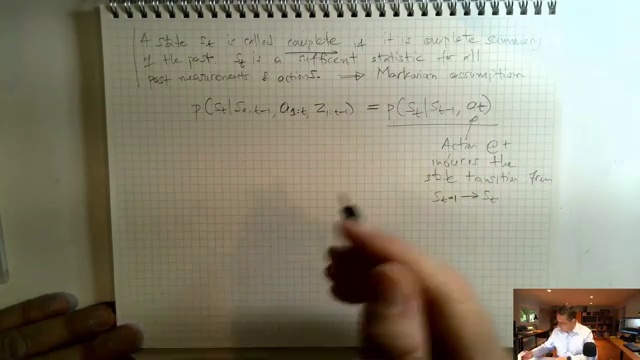 A state St is called complete if it is complete summary
of the past St is a sufficient statistic for all
past measurements & actions. ⟹ Markovian assumption
p(St|S0:t-1, a1:t, Z1:t-1) = p(St|St-1, at)
Action @t
induces the
state transition from
St-1 → St